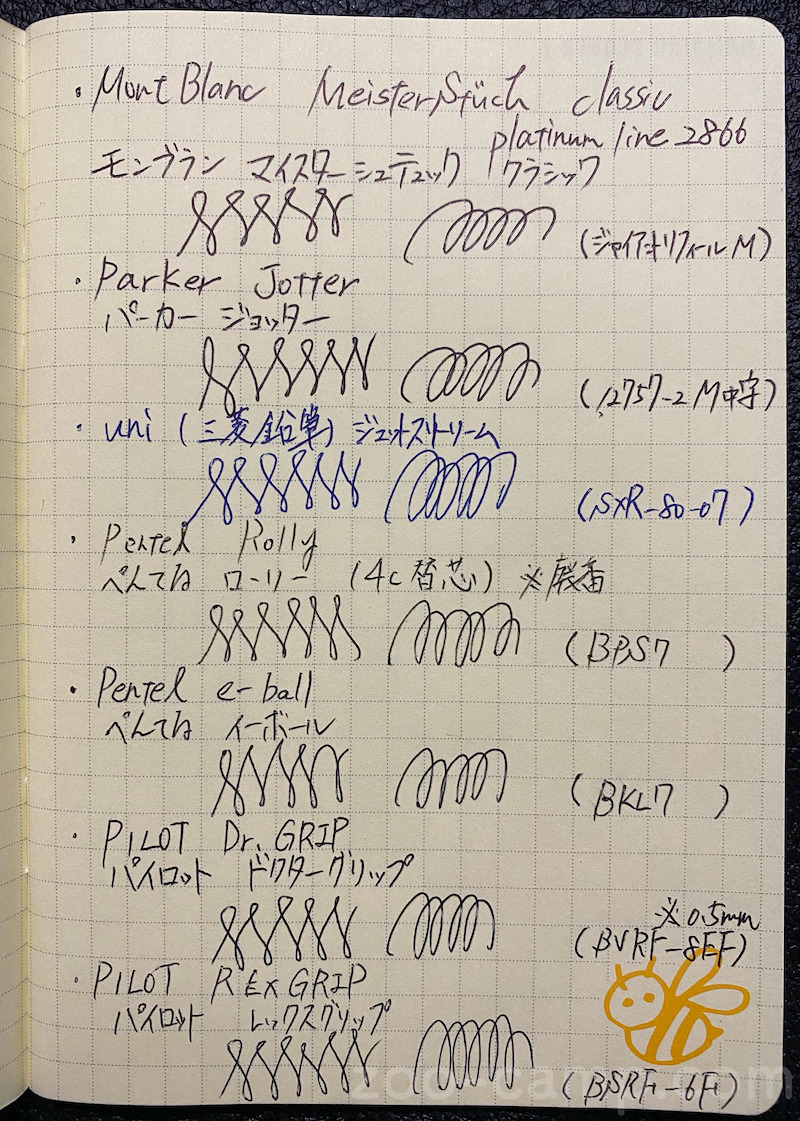 ・Mont Blanc Meisterstück classic
platinum line 2866
モンブラン マイスターシュテュック クラシック
(ジャイアントリフィール M)
・Parker Jotter
パーカー ジョッター
(12757-2 M中字)
・uni (三菱鉛筆) ジェットストリーム
(SXR-80-07)
・Pentel Rolly
ぺんてる ローリー (4c替芯) ※廃番
(BPS7 )
・Pentel e-ball
ぺんてる イーボール
(BKL7 )
・PILOT Dr. GRIP
パイロット ドクターグリップ
※0.5mm
(BVRF-8EF)
・PILOT RExGRIP
パイロット レックスグリップ
(BSRF-6F)
zoo-camp.com